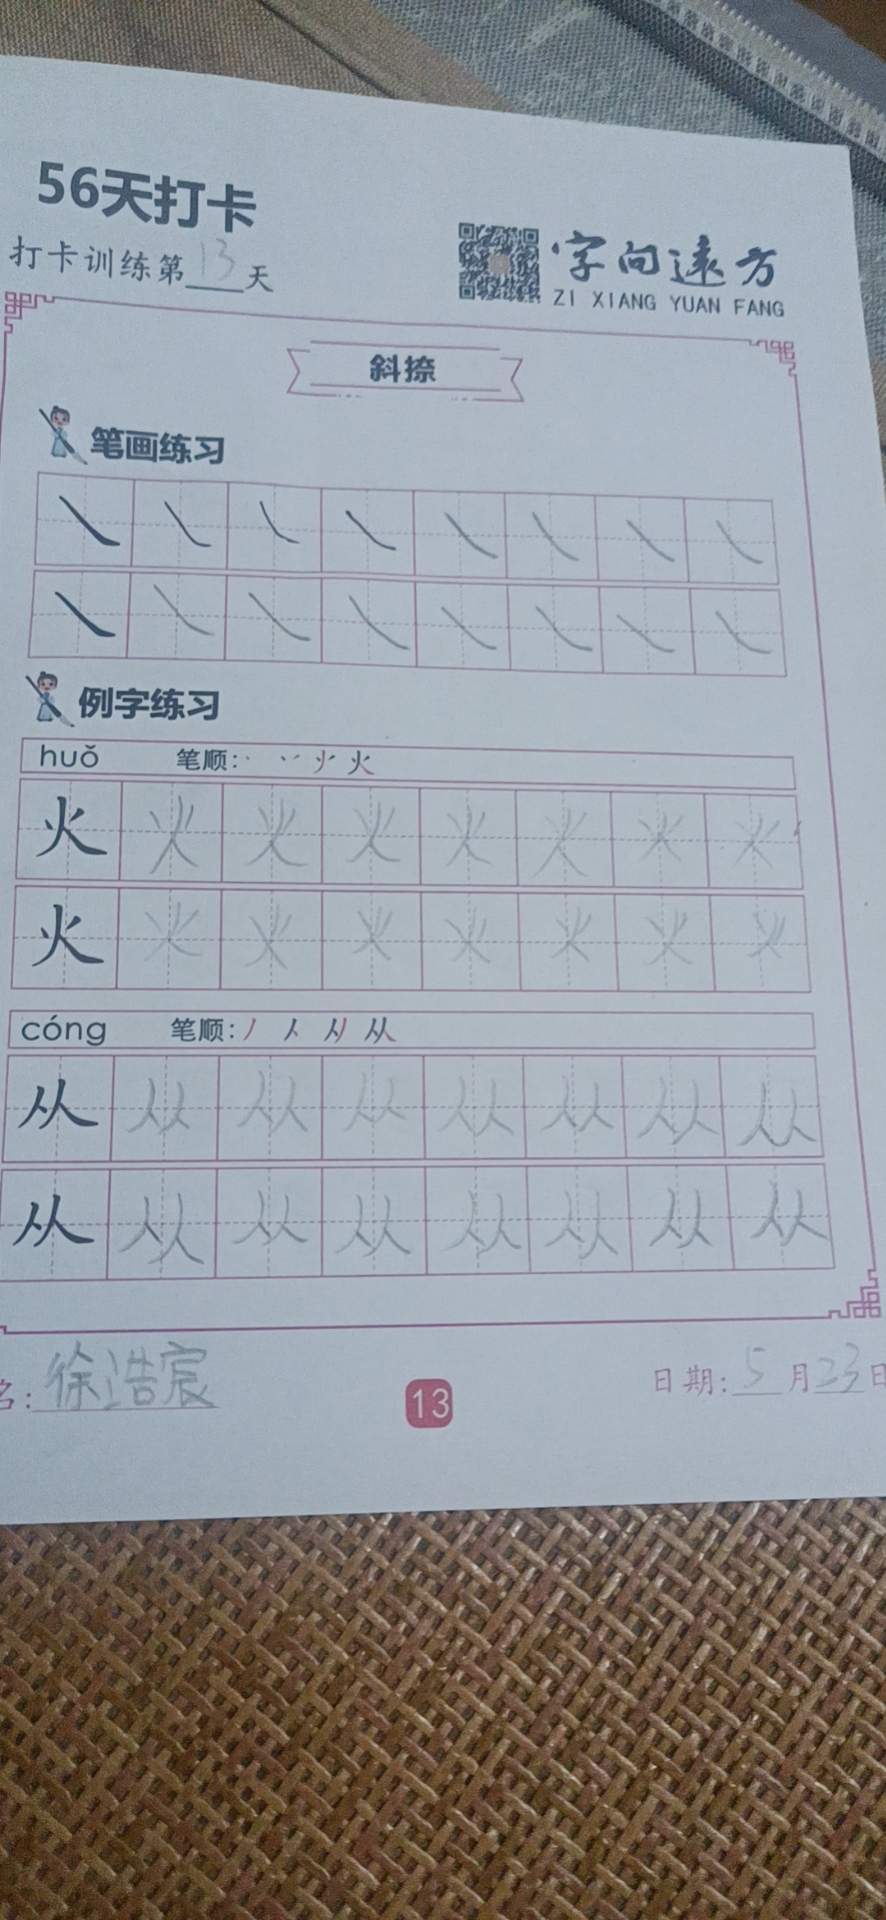 56天打卡
打卡训练第13天
字向远方
ZI XIANG YUAN FANG
斜捺
笔画练习
㇏ ㇏ ㇏ ㇏ ㇏ ㇏ ㇏ ㇏
㇏ ㇏ ㇏ ㇏ ㇏ ㇏ ㇏ ㇏
例字练习
huǒ 笔顺: 火
火 火 火 火 火 火 火 火
火 火 火 火 火 火 火 火
cóng 笔顺: 丿 人 从
从 从 从 从 从 从 从 从
从 从 从 从 从 从 从 从
名: 徐浩宸
13
日期: 5月23日